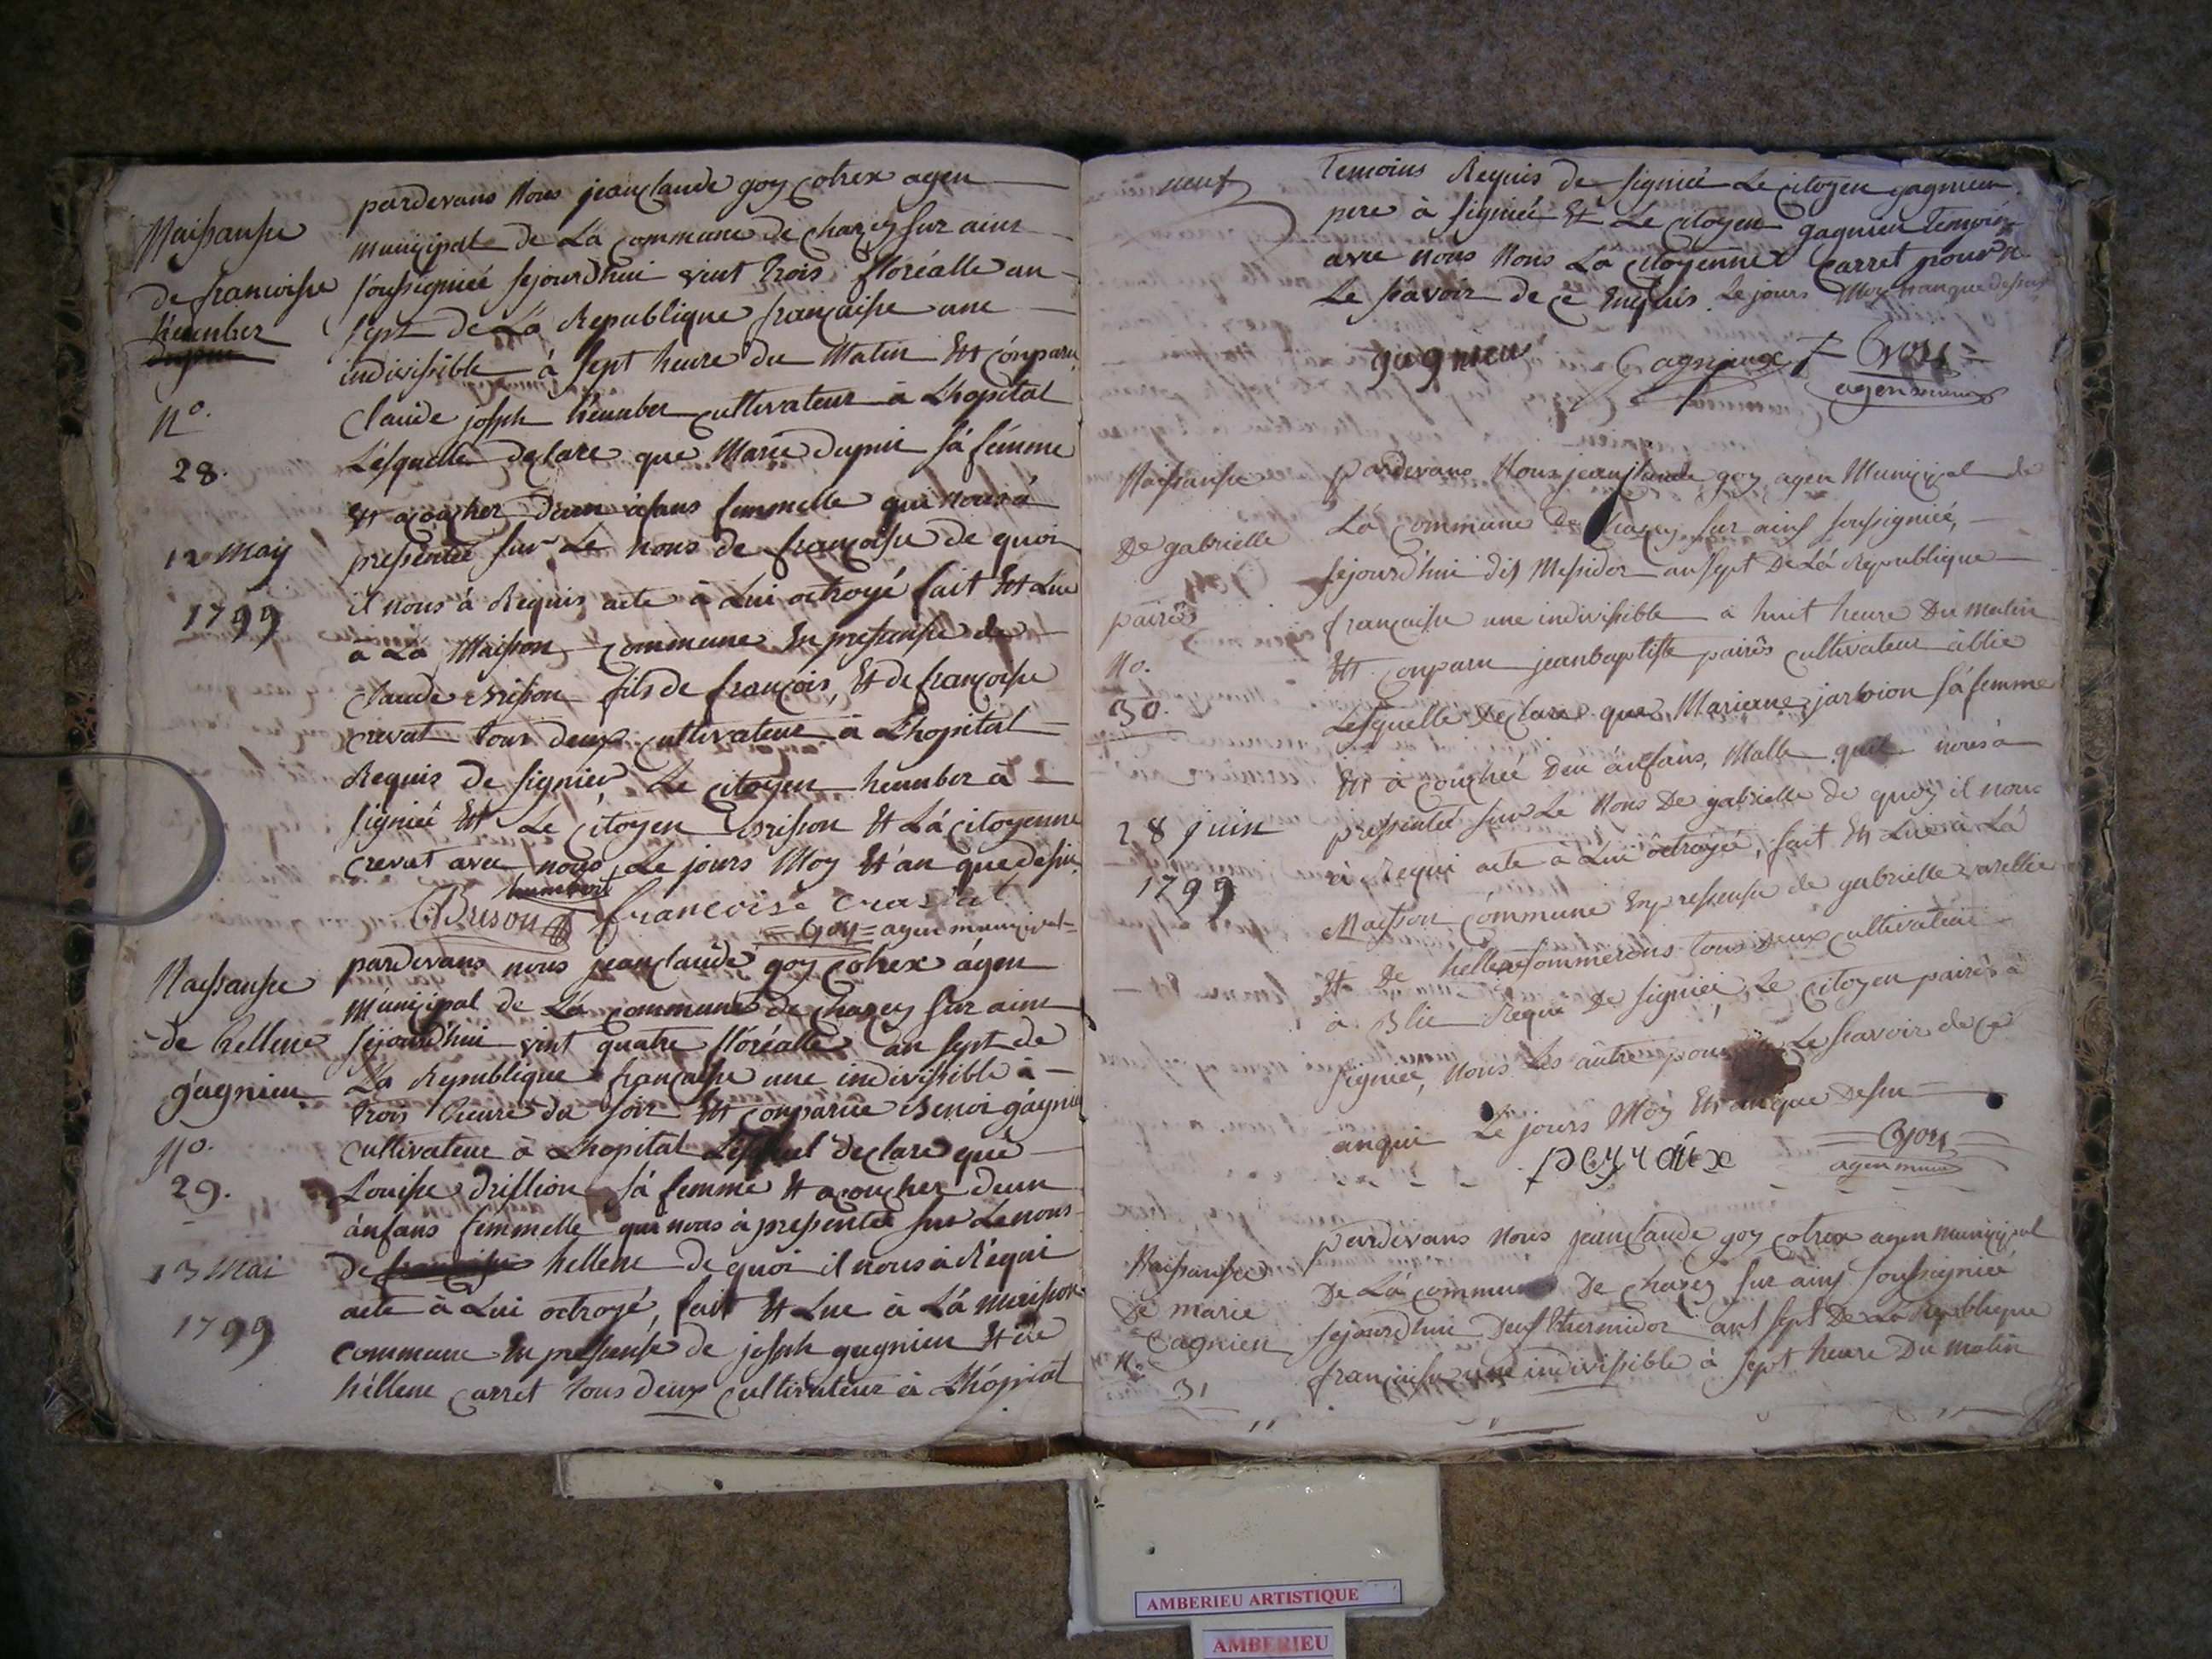 pardevans Nous jean claude goy cohex agen
Naissansse municipal de La commune de chazey sur ains
de francoisse soussigniéé sejourdhui vint trois floréalle an
heumber sept de La Republique francaisse une
indivissible à sept heure du Matin Est conparu
N°. Claude joseph heumber cultivateur à Lhopital
28. Lesquelle declare que Marie dupui sá fémme
Est acoucher deun áfans femmelle qui nous á
12 May pressentée sur Le nons de francoisse de quoi
1799 il nous à Requis acte à Lui octroyé fait Et Lue
à La Maisson commune En pressansse de
Claude brisson fils de francois, Et de francoisse
crevat tous deux cultivateur à Lhopital
Requis de signiér Le citoyen heumber à
signiéé Et Le citoyen brisson Et Lá citoyenne
crevat avec nous Le jours Moy Et an que dessu
humbert
Buison francoise cravat
= Goy = agen municipal =
pardevans nous jean claude goy cohex ágen
Naissansse municipal de La commune de chazey sur ains
de hellene séjourdhui vint quatre floréalle an sept de
gagnieu La Republique francaisse une indivissible à
trois heure du soir Est conparue Benoi gagnieu
N°. cultivateur à Lhopital Lesquel declare que
29. Louisse drillion sá femme Et acoucher deun
ánfans femmelle qui nous à pressentée sur Le nons
13 Mai de hellene de quoi il nous à Réqui
1799 acte à Lui octroyé, fait Et Lue à Lá Maisson
commune En pressansse de joseph gagnieu Et de
héllene carret tous deux cultivateur à Lhópital
neuf Temoins Requis de signiéé Le citoyen gagnieu
pere à signiéé Et Le citoyen gagnieu Temoin
avec nous Nons La citoyenne Carret pour ne
Le sçavoir de ce Enquis Le jours Moy Et an que dessus
gagnieu Gagnieux Goy =
agen munici
Naissansse pardevans Nous jean claude goy agen Municipal de
De gabrielle La Commune De chazey sur ains soussigniéé,
séjourdhui dix Messidor an sept De Lá Republique
pairés francaisse une indivissible à huit heure Du matin
No. Est conparu jeanbaptiste pairés cultivateur à blie
30. Lesquelle declare que Mariane jarbion sá femme
Est à couchéé Deu ánfans, Malle quil nous á
28 juin pressentéé sur Le Nons De gabrielle de quoy il nous
1799 à Requi acte à Lui octroyéé, fait Et Lue à Lá
Maisson commune En pressensse de gabrielle
Et De hellene sommerons tous Deux cultivateur
à Blie Requi De signiéé, Le citoyen pairés à
signiéé, Nons Les autre pour Le sçavoir de ce
anqui Le jours Moy Et an que Dessu
peyraux Goy
agen muni
Naissansse pardevans Nous jean claude goy cohex agen municipal
De marie De Lá commune De chazey sur ains soussigniéé
Gagnieu sejourdhui Deux thermidor ant sept De La Republique
N° francaisse une indivissible à sept heure Du matin
31
AMBERIEU ARTISTIQUE
AMBERIEU